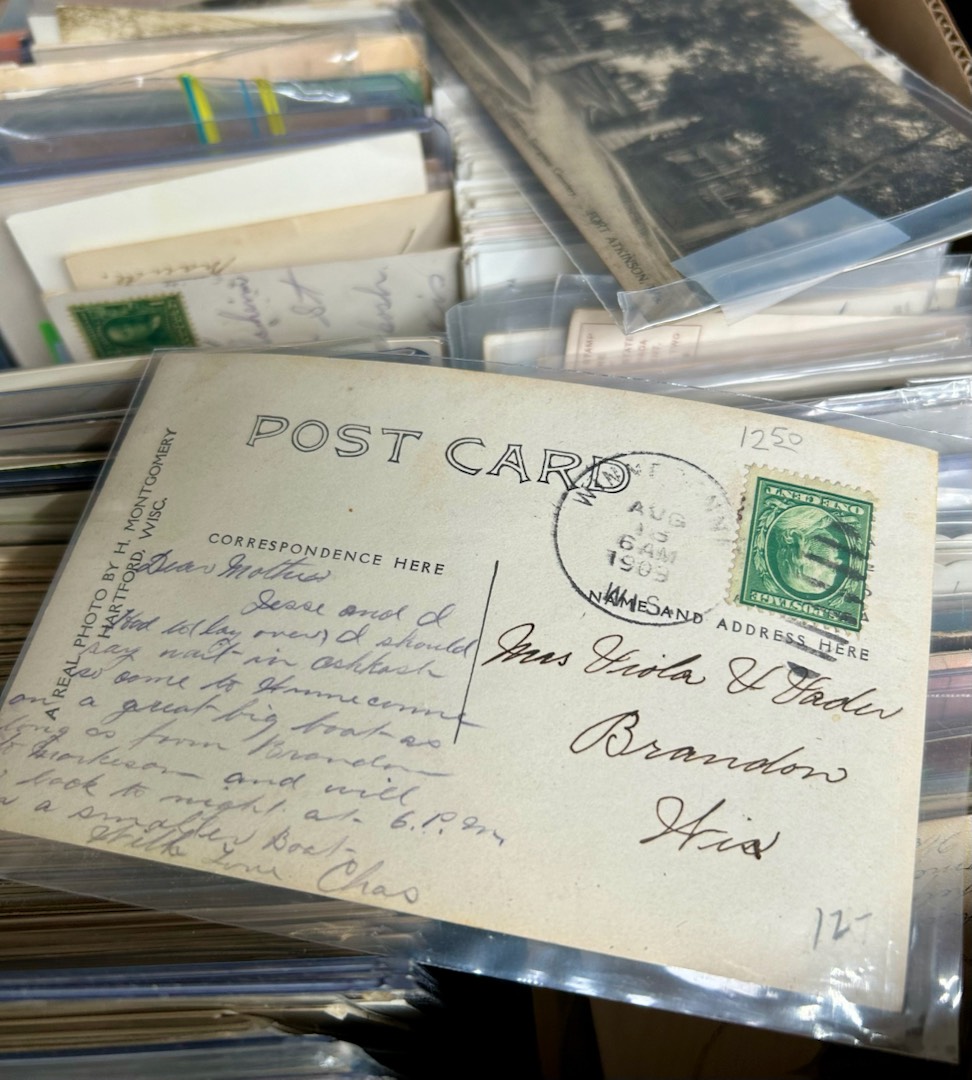 POST CARD
1250
A REAL PHOTO BY H. MONTGOMERY
HARTFORD, WISC.
CORRESPONDENCE HERE
AUG
6 AM
1909
WIS.
ONE CENT
POSTAGE
NAME AND ADDRESS HERE
Dear Mother
Jesse and I
Had to lay over, I should
say wait in oshkosh
so come to
on a great big boat as
long as from Brandon
to and will
back to night at 6. P.M.
a smaller Boat
With Love Chas
Mrs Viola
Brandon
Wis
12-
FORT ATKINSON,
St